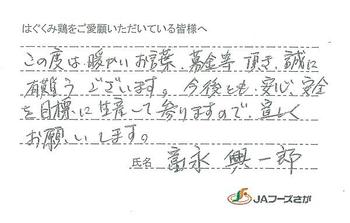 はぐくみ鶏をご愛顧いただいている皆様へ
この度は、暖かいお言葉、募金等 頂き、誠に
有難う ございます。 今後とも、安心、安全
を目標に生産して参りますので、宜しく
お願いします。
氏名 富永 興一郎
JAフーズさが